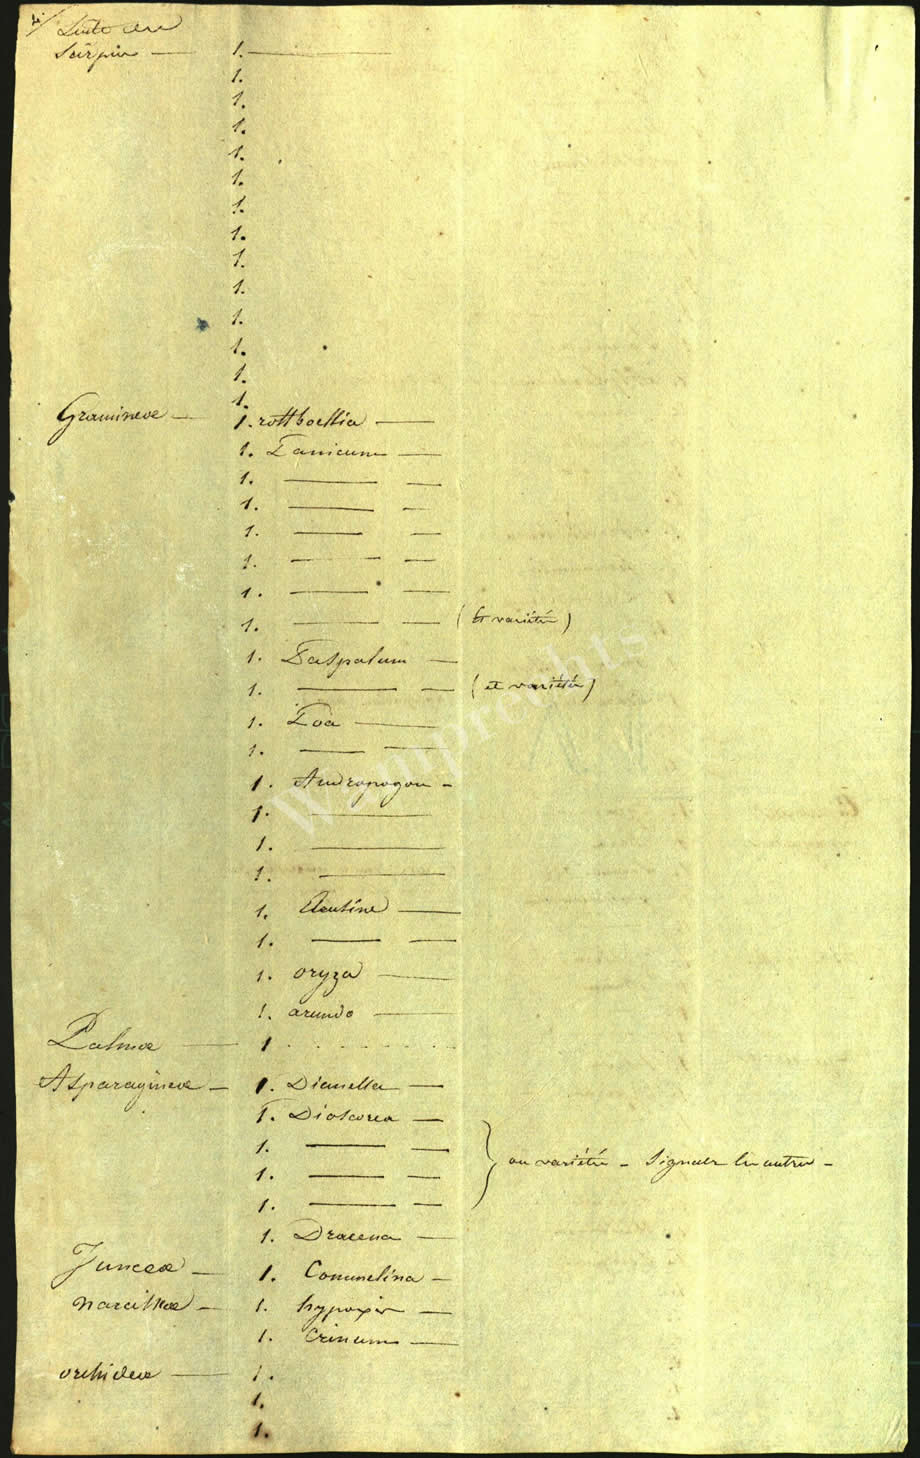 4/ Suite des
Scirpus — 1. —
1.
1.
1.
1.
1.
1.
1.
1.
1.
1.
1.
1.
1.
Gramineae — 1. rottboellia —
1. Panicum —
1. — —
1. — —
1. — —
1. — —
1. — —
1. — — (et variétés)
1. Paspalum —
1. — — (et variétés)
1. Poa —
1. — —
1. Andropogon -
1. —
1. —
1. —
1.
1. — —
1. oryza —
1. arundo —
Palmae — 1 . . . . . . .
Asparagineae — 1. Dianella —
1. Dioscorea —
1. — —
1. — — } ou variétés - Signaler les autres -
1. — —
1. Dracena —
Junceae — 1. Commelina —
narcisseae — 1. hypoxis —
1. Crinum —
orchideae — 1.
1.
1.
Wamprechts